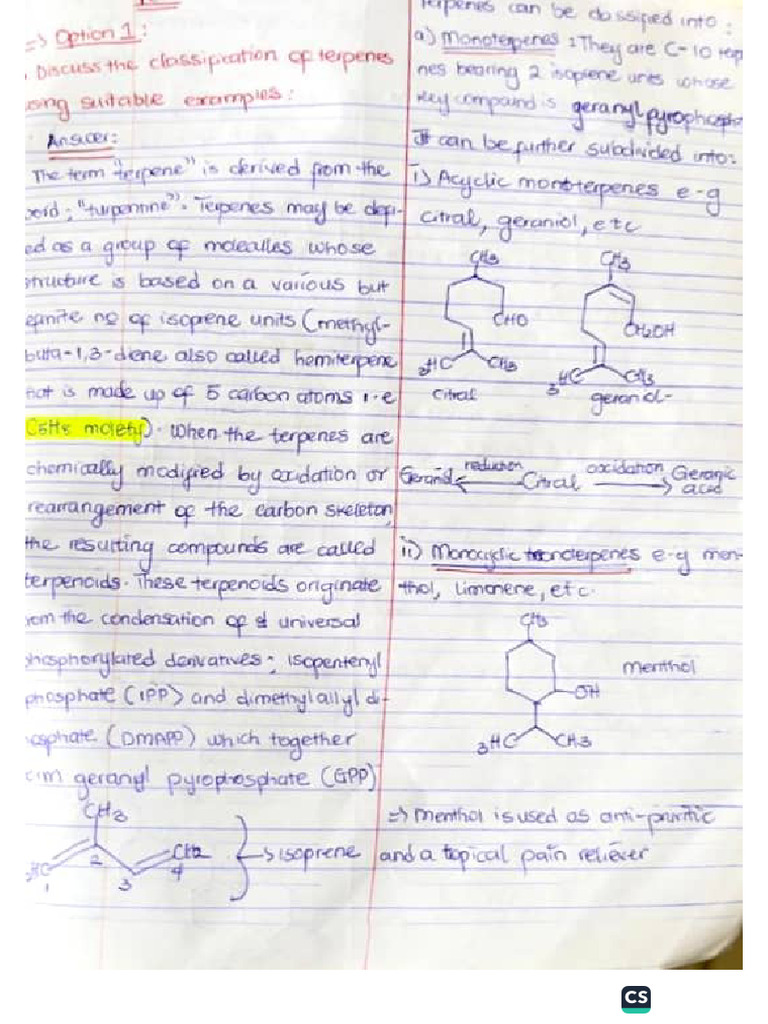 => Option 1:
Discuss the classification of terpenes
using suitable examples:
Answer:
The term "terpene" is derived from the
word; "turpentine". Terpenes may be defi-
ed as a group of molecules whose
structure is based on a various but
efinite no of isoprene units (methyl-
buta-1,3-diene also called hemiterpene
that is made up of 5 carbon atoms i.e
C5H8 moiety). When the terpenes are
chemically modified by oxidation or
rearrangement of the carbon skeleton,
the resulting compounds are called
terpenoids. These terpenoids originate
from the condensation of universal
phosphorylated derivatives; isopentenyl
phosphate (IPP) and dimethylallyl di-
osphate (DMAPP) which together
geranyl pyrophosphate (GPP)
CH3
H2C
1
2
3
CH2
4
-> isoprene
Terpenes can be classified into:
a) Monoterpenes: They are C-10 terp
nes bearing 2 isoprene units whose
key compound is geranylpyrophosph
It can be further subdivided into:
i) Acyclic monoterpenes e-g
citral, geraniol, etc
CH3
CHO
3HC
CH3
citral
CH3
CH2OH
3HC
CH3
geraniol-
Geraniol <- reduction Citral oxidation -> Geranic
acid
ii) Monocyclic monoterpenes e-g men-
thol, limonene, etc.
CH3
OH
menthol
3HC
CH3
=> Menthol is used as anti-pruritic
and a topical pain reliever
CS